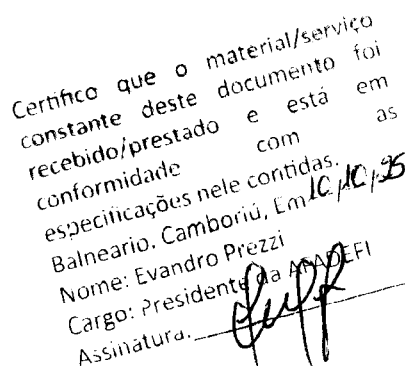 Certifico que o material/serviço
constante deste documento foi
recebido/prestado e está em
conformidade com as
especificações nele contidas.
Balneario, Camboriú, Em 10/10/25
Nome: Evandro Prezzi
Cargo: Presidente da APADEFI
Assinatura.